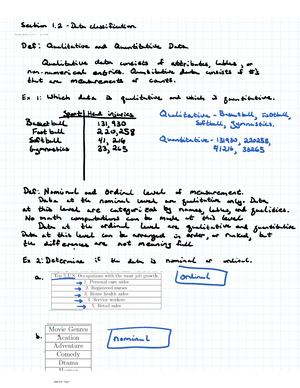 Section 1.2 - Data classification
Def: Qualitative and Quantitative Data
Qualitative data consists of attributes, labels, or
non-numerical entries. Quantitative data consists of #'s
that are measurements or counts.
Ex 1: Which data is qualitative and which is quantitative.
Sport Head injuries
Basketball 131,930
Football 220,258
Softball 41,216
Gymnastics 33,265
Qualitative - Baseball, football,
Softball, Gymnastics.
Quantitative - 131930, 220258,
41216, 33265
Def: Nominal and Ordinal level of measurement.
Data at the nominal level are qualitative only. Data
at this level are categorized by names, labels and qualities.
No math computations can be made at this level
Data at the ordinal level are qualitative and quantitative
Data at this level can be arranged in order, or ranked, but
the differences are not meaning full
Ex 2: Determine if the data is nominal or ordinal.
a.
Top 5 U.S. Occupations with the most job growth
1. Personal care aides
2. Registered nurses
3. Home health aides
4. Service workers
5. Retail sales
Ordinal
b.
Movie Genres
Acation
Adventure
Comedy
Drama
Horror
nominal